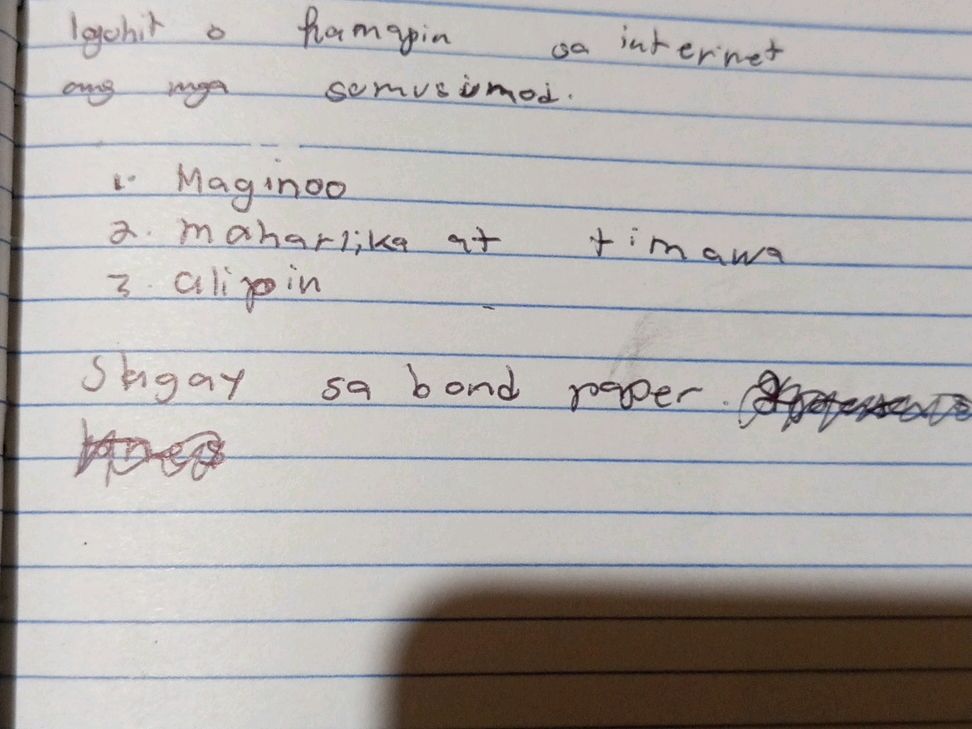 Iguhit o hamapin sa internet
ang mga sumusumod.
1. Maginoo
2. maharlika at timawa
3. alipin
sa bond paper.